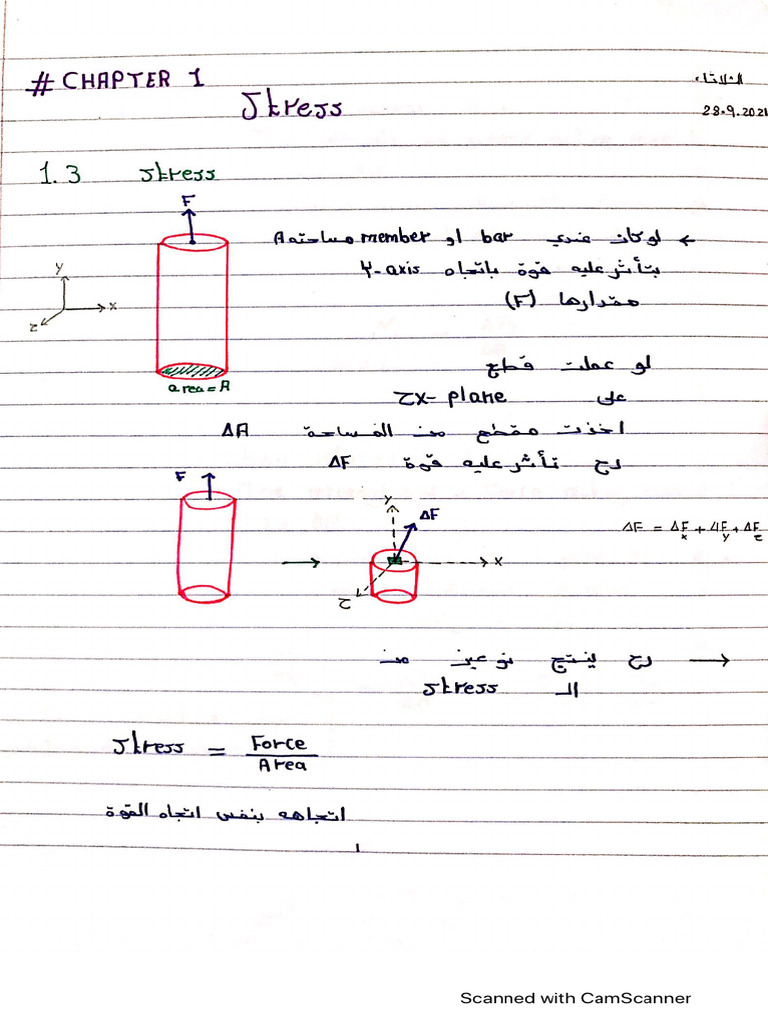 # CHAPTER 1
الثلاثاء
Stress
28.9.2021
1.3 Stress
F
← لو كان عندي bar او member مساحته A
بتأثر عليه قوة باتجاه Y-axis
مقدارها (F)
y
x
z
area = A
لو عملت قطع
على zx-plane
اخذت مقطع من المساحة ΔA
رح تأثر عليه قوة ΔF
F
y
ΔF
x
z
ΔF = ΔFx + ΔFy + ΔFz
→ رح ينتج نوعين من
الـ Stress
Stress = Force / Area
اتجاهه بنفس اتجاه القوة
Scanned with CamScanner